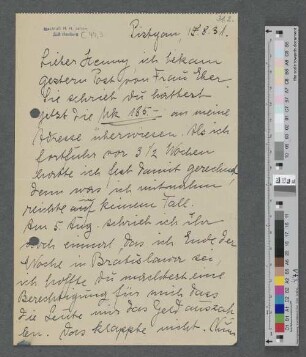 312.
Pistyan, 17.8.31.
Lieber Henny ich bekam
gestern Post von Frau Eber.
Sie schrieb du hättest
jetzt die Mk 185 - an meine
Adresse überwiesen. Als ich
fortfuhr vor 3 1/2 Wochen
hatte ich fest damit gerechnet
denn was ich mitnahm
reichte auf keinem Fall.
Am 5. Aug schrieb ich Ihr
noch einmal das ich Ende der
Woche in Bratislava sei,
ich hoffte Du machtest eine
Berechtigung für mich dass
die Leute uns das Geld auszah-
len. Das klappte nicht. Nun